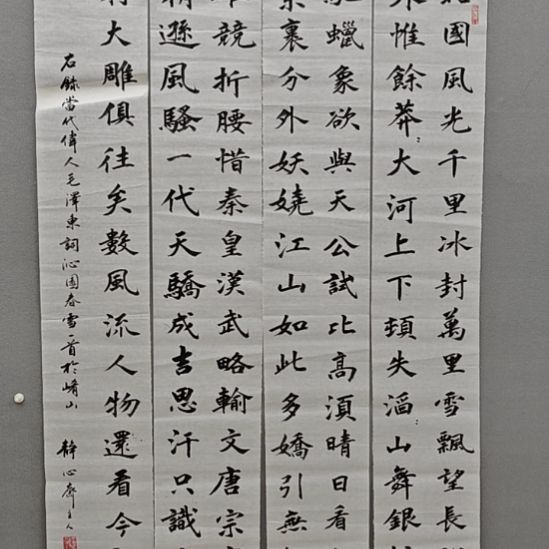 國風光千里冰封萬里雪飄望長
惟餘莽〻大河上下頓失滔〻山舞銀
蠟象欲與天公試比高須晴日看
裹分外妖嬈江山如此多嬌引無
競折腰惜秦皇漢武略輸文唐宗
遜風騷一代天驕成吉思汗只識
大雕俱往矣數風流人物還看今
右錄當代偉人毛澤東詞沁園春雪一首於崤山 靜心齋主人